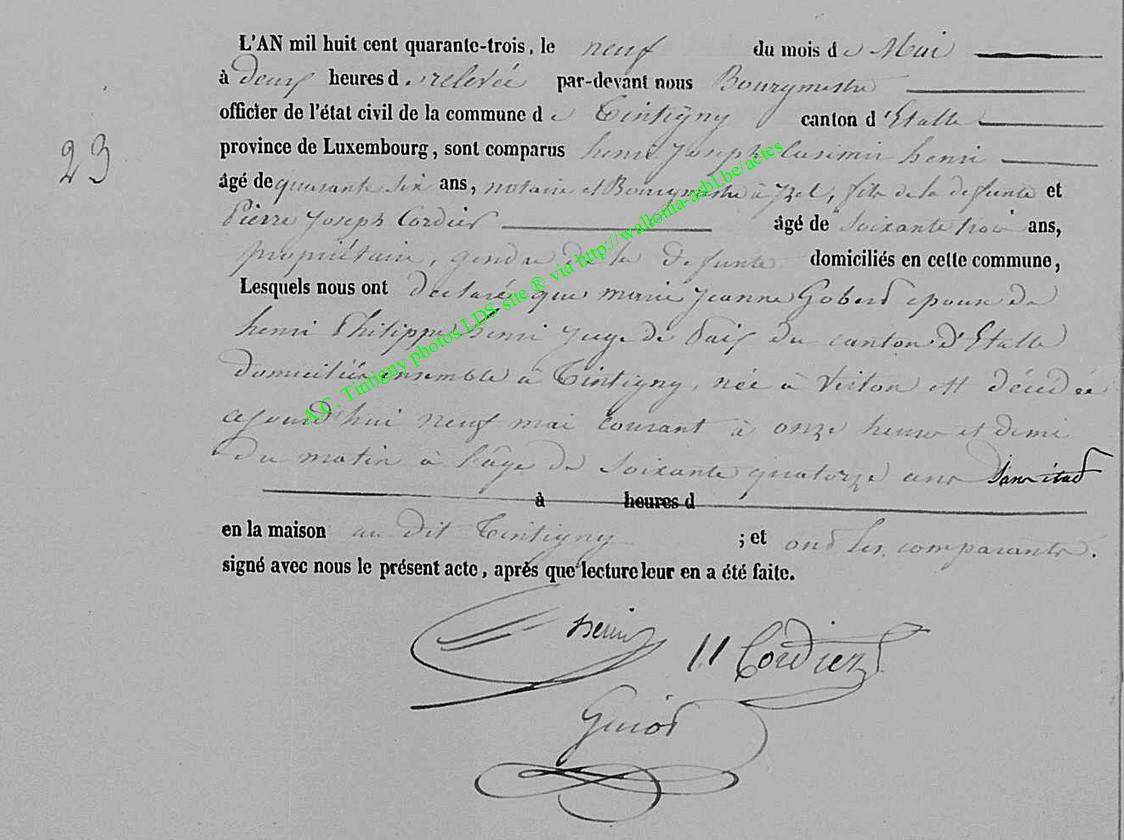 L'AN mil huit cent quarante-trois, le neuf du mois de Mai
à deux heures de relevée par-devant nous Bourgmestre
officier de l'état civil de la commune de Tintigny canton d'Etalle
23
province de Luxembourg, sont comparus henri Joseph Casimir henri
âgé de quarante six ans, notaire et Bourgmestre à Izel, fils de la defunte et
Pierre Joseph Cordier âgé de soixante trois ans,
propriétaire, gendre de la defunte domiciliés en cette commune,
Lesquels nous ont declaré que marie Jeanne Gobert epouse de
henri Philippe henri Juge de Paix du canton d'Etalle
domiciliés ensemble à Tintigny, née à Virton est décédée
cejourd'hui neuf mai courant à onze heures et demi
du matin à l'âge de soixante quatorze ans Sans état
à heures d
en la maison au dit Tintigny ; et ont les comparants.
signé avec nous le présent acte, après que lecture leur en a été faite.
henri
Cordier
A.C. Tintigny photos LDS site ® via http://wallonia-asbl.be/actes